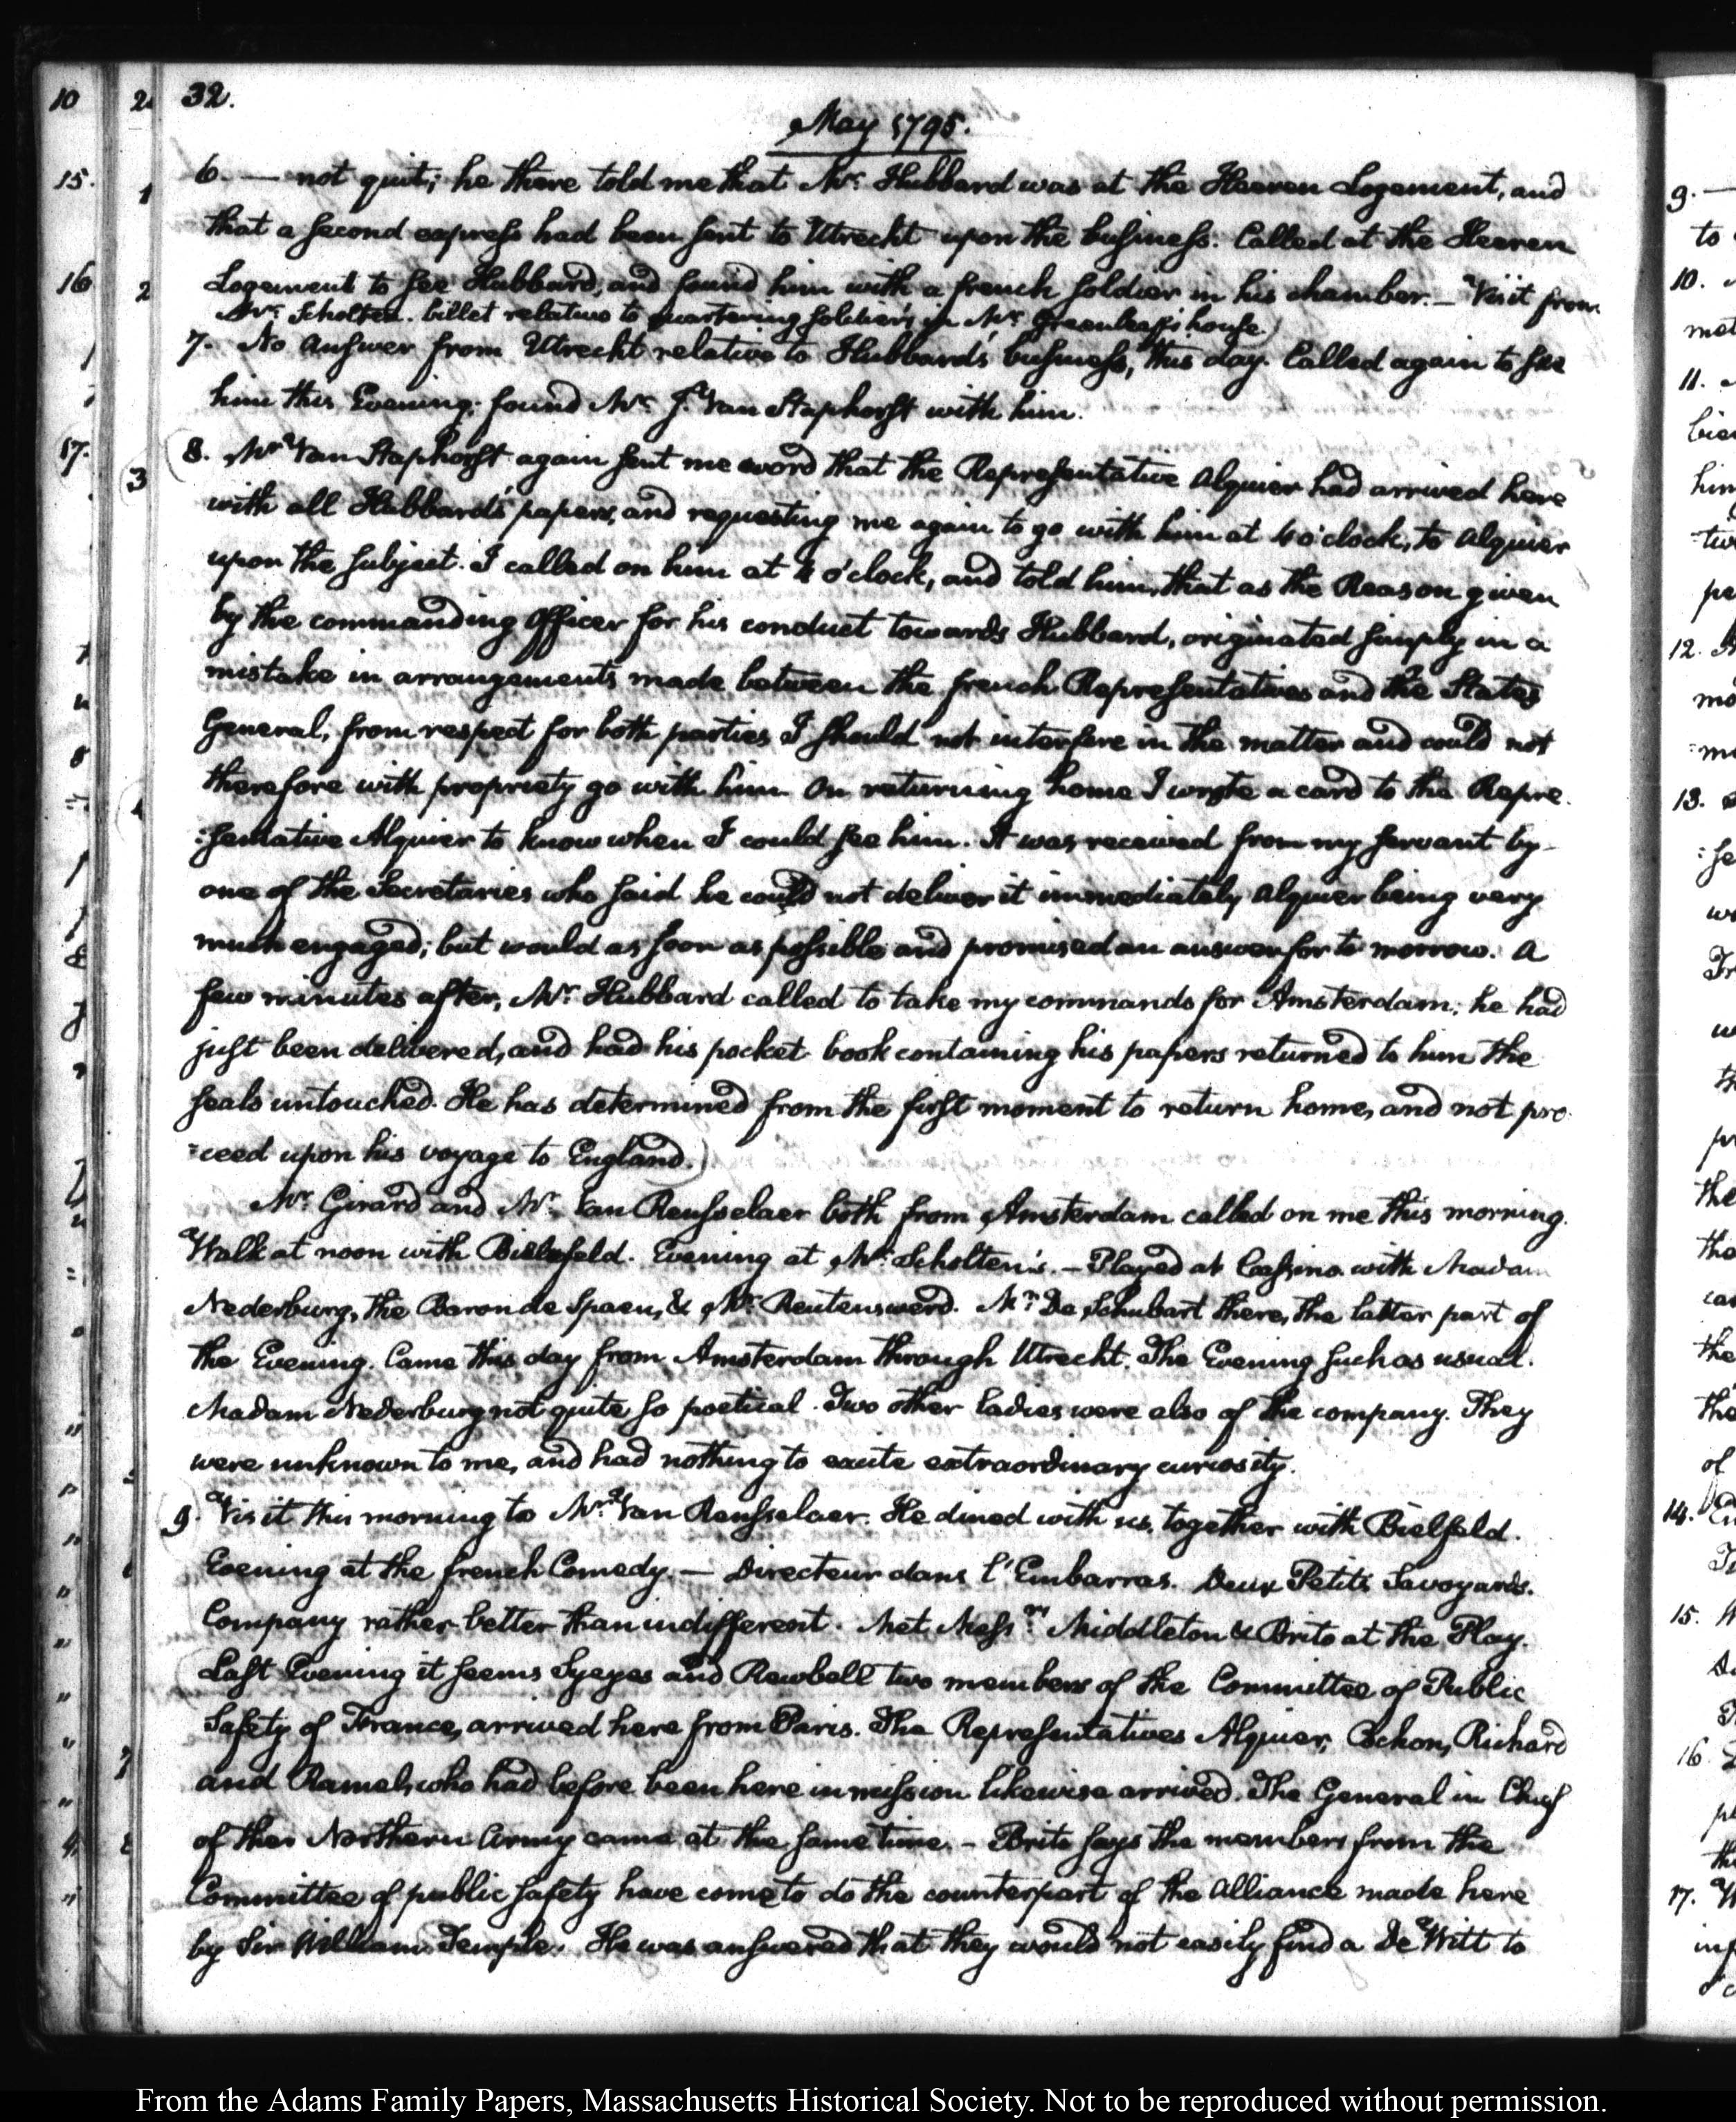 32.
May 1795.
6. — not quit; he there told me that Mr. Hubbard was at the Heeren Logement, and
that a second express had been sent to Utrecht upon the business. Called at the Heeren
Logement to see Hubbard, and found him with a french soldier in his chamber. — Visit from
Mr. Scholten. billet relative to quartering soldiers in Mr. Greenleaf's house.)
7. No answer from Utrecht relative to Hubbard's business, this day. Called again to see
him this Evening; found Mr. J. Van Staphorst with him.
8. Mr. Van Staphorst again sent me word that the Representative Alquier had arrived here
with all Hubbard's papers, and requesting me again to go with him at 4 o'clock, to Alquier
upon the subject. I called on him at 4 o'clock, and told him, that as the Reason given
by the commanding Officer for his conduct towards Hubbard, originated simply in a
mistake in arrangements made between the french Representatives and the States
General, from respect for both parties I should not interfere in the matter and could not
therefore with propriety go with him. On returning home I wrote a card to the Repre
:sentative Alquier to know when I could see him. It was received from my servant by
one of the Secretaries who said he could not deliver it immediately Alquier being very
much engaged; but would as soon as possible and promised an answer for to morrow. A
few minutes after, Mr. Hubbard called to take my commands for Amsterdam; he had
just been delivered, and had his pocket book containing his papers returned to him the
seals untouched. He has determined from the first moment to return home, and not pro
:ceed upon his voyage to England.)
Mr. Girard and Mr. Van Rensselaer both from Amsterdam called on me this morning.
Walk at noon with Bielefeld. Evening at Mr. Scholten's. — Played at Cassino with Madam
Nederburg, the Baron de Spaen, & Mr. Reutenswerd. Mr. De Schubart there, the latter part of
the Evening. Came this day from Amsterdam through Utrecht. The Evening such as usual.
Madam Nederburg not quite so poetical. Two other ladies were also of the company. They
were unknown to me, and had nothing to excite extraordinary curiosity.
9. Visit this morning to Mr. Van Rensselaer. He dined with us, together with Bielfeld.
Evening at the french Comedy. — Directeur dans l'Embarras. Deux Petits Savoyards.
Company rather better than indifferent. Met Messrs. Middleton & Brito at the Play.
Last Evening it seems Syeyes and Rewbell two members of the Committee of Public
Safety of France, arrived here from Paris. The Representatives Alquier, Cochon, Richard
and Ramel, who had before been here in mission likewise arrived. The General in Chief
of their Northern Army came at the same time. — Brito says the members from the
Committee of public safety have come to do the counterpart of the Alliance made here
by Sir William Temple. He was answered that they would not easily find a De Witt to
From the Adams Family Papers, Massachusetts Historical Society. Not to be reproduced without permission.